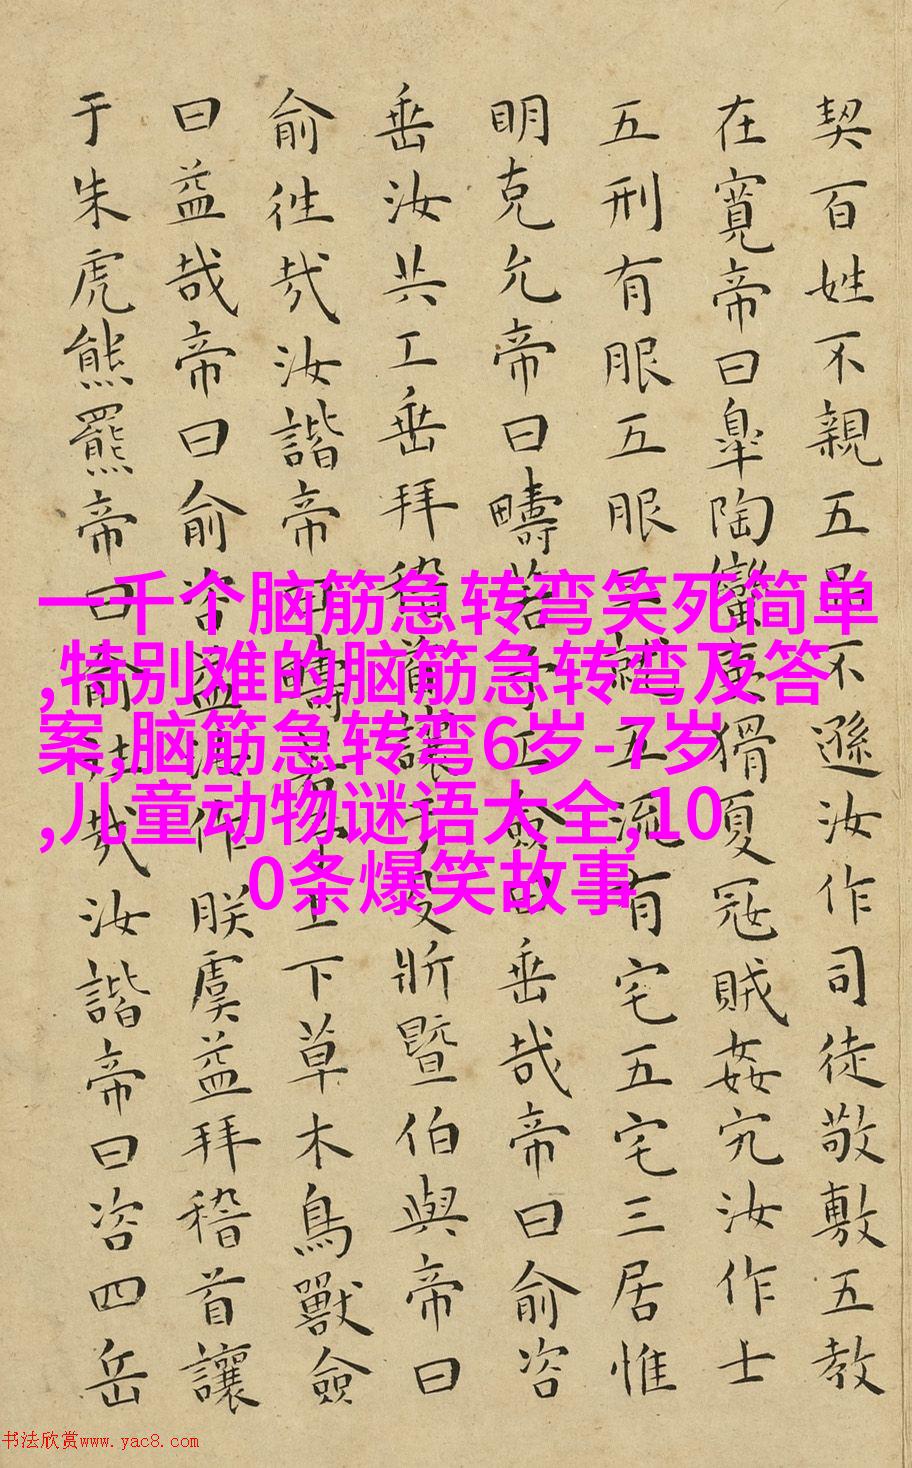 契百姓不親五品不遜汝作司徒敬敷五教
在寬帝曰臯陶蠻夷猾夏冦賊姦宄汝作士
五刑有服五服三就五流有宅五宅三居惟
明克允帝曰疇若予工僉曰垂哉帝曰俞咨
垂汝共工垂拜稽首讓于殳斨暨伯與帝曰
俞往哉汝諧帝曰疇若予上下草木鳥獸僉
曰益哉帝曰俞咨益汝作朕虞益拜稽首讓
于朱虎熊羆帝曰俞往哉汝諧帝曰咨四岳
一千个脑筋急转弯笑死简单
,特别难的脑筋急转弯及答
案,脑筋急转弯6岁-7岁
,儿童动物谜语大全,10
0条爆笑故事
书法欣赏www.yac8.com